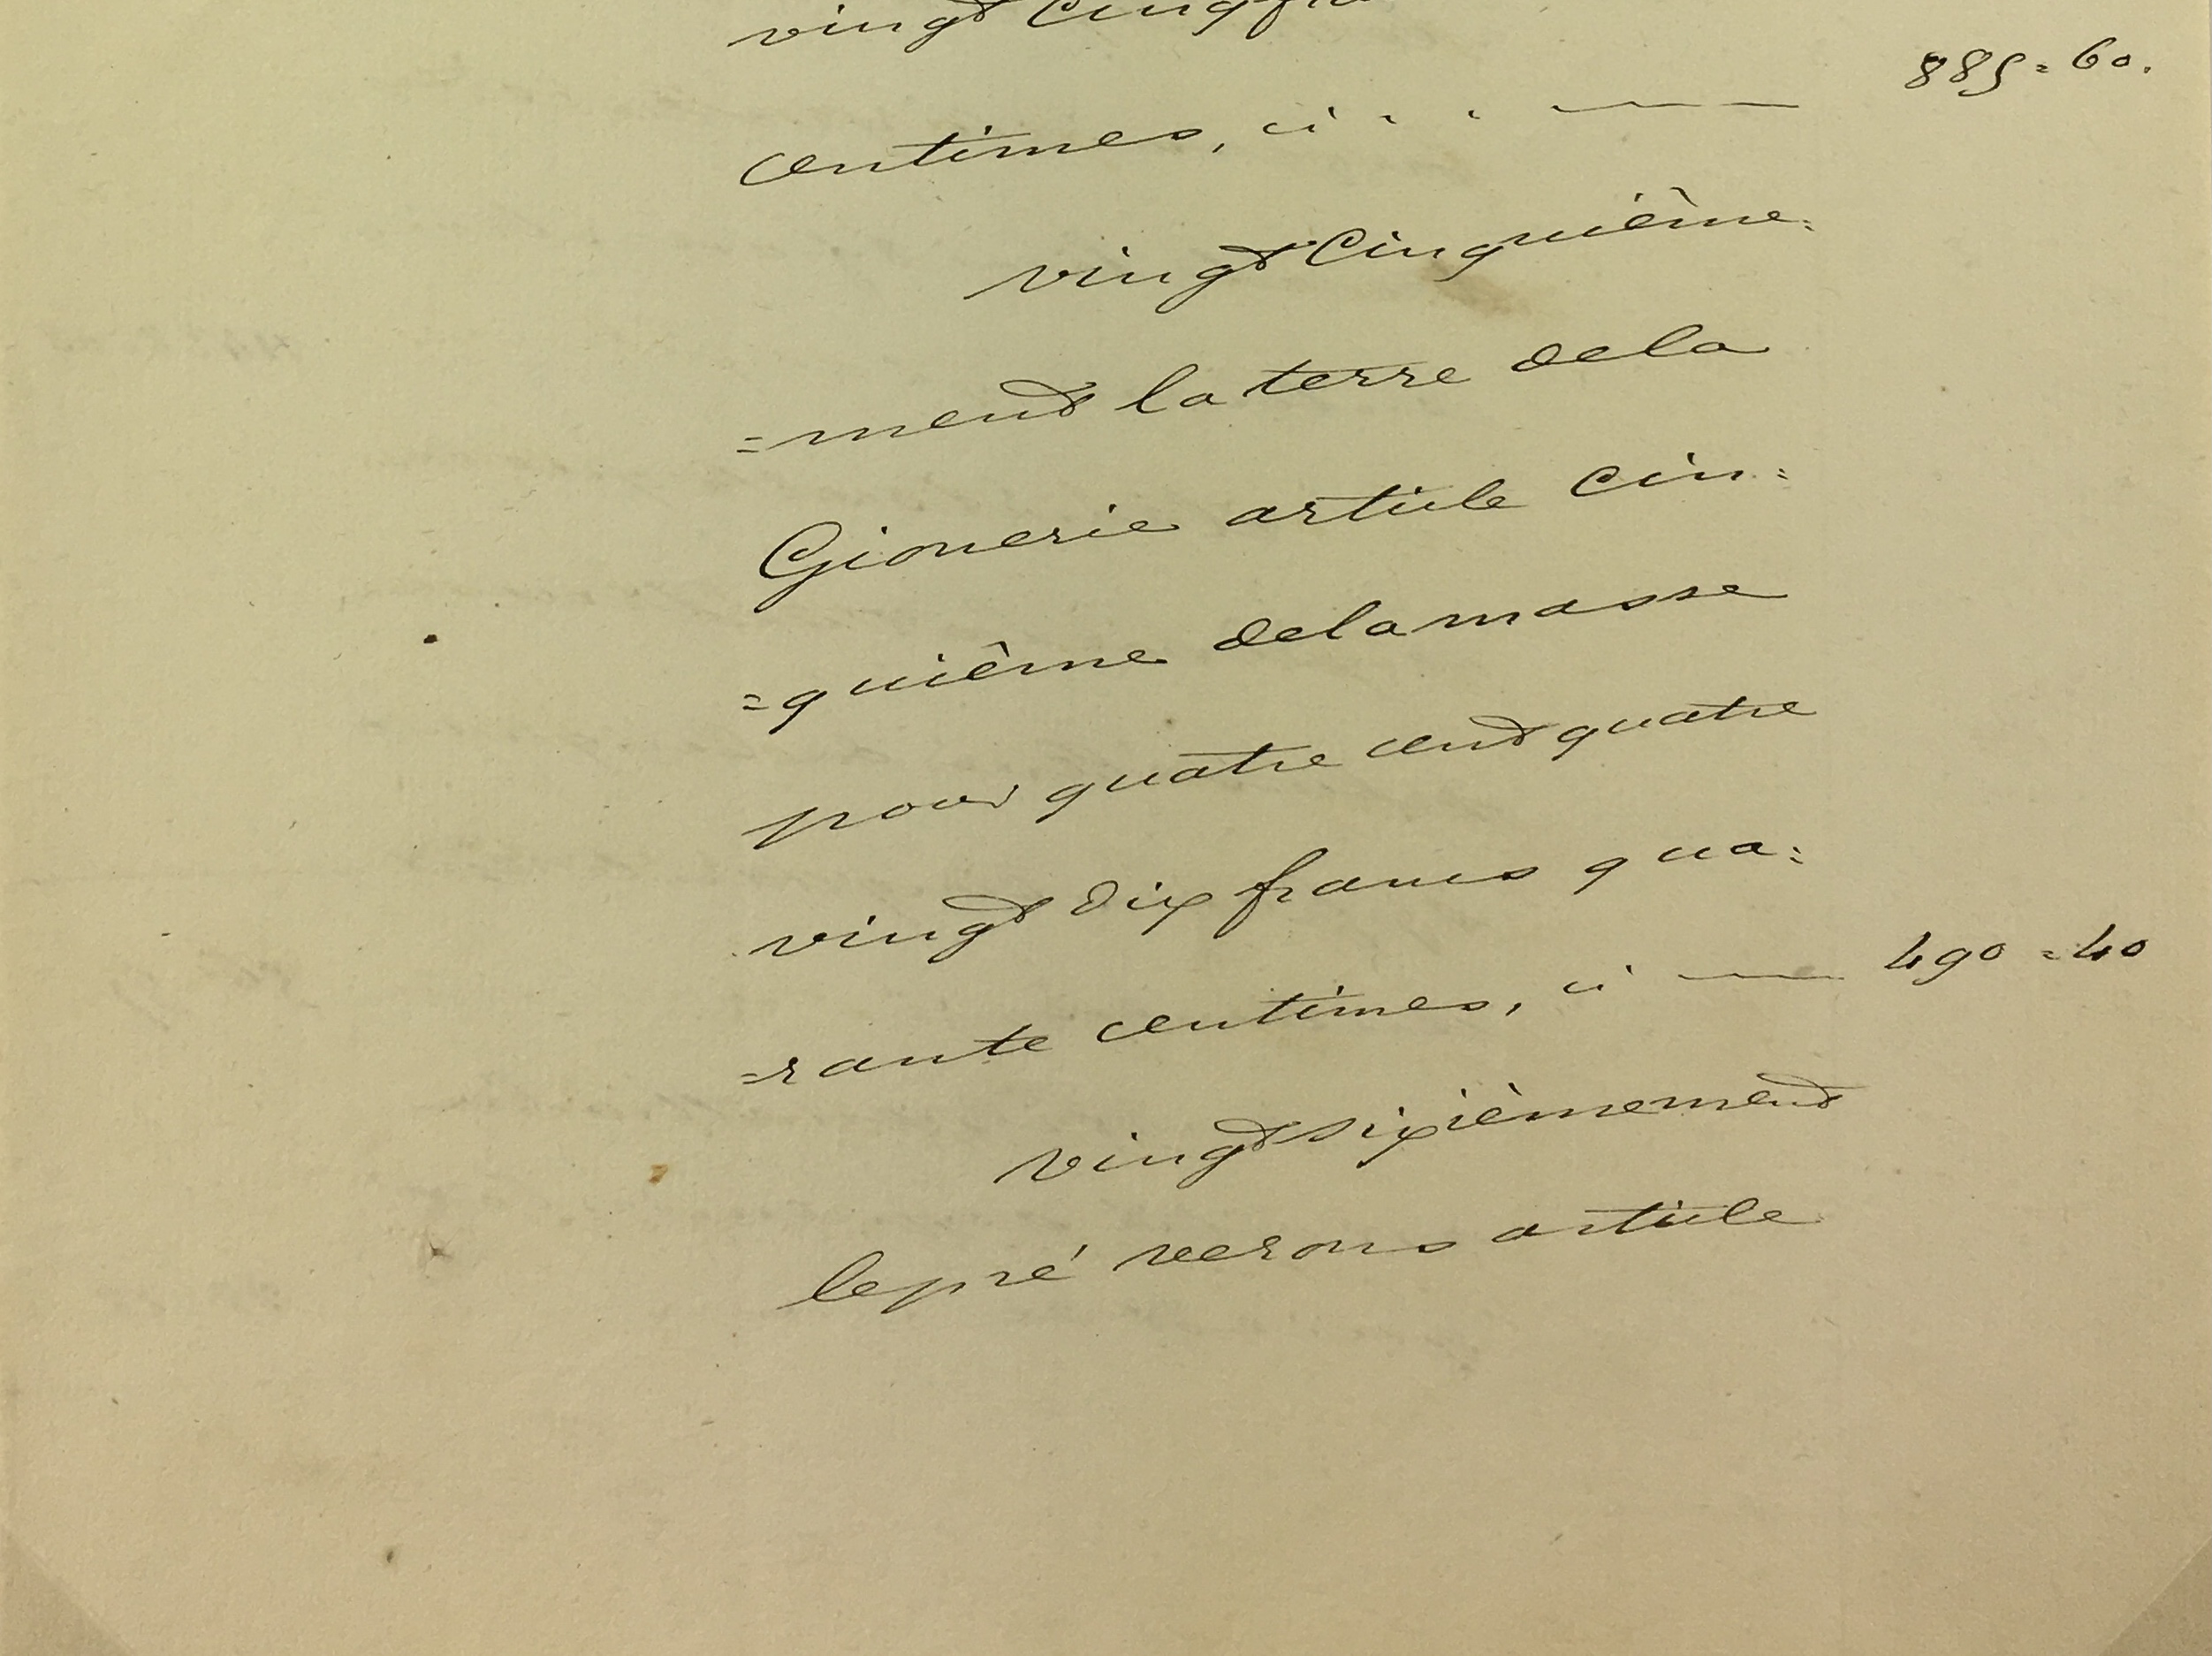 vingt cinq fra
885=60.
centimes, ci . . ——
vingt Cinquième=
=ment la terre dela
Gionerie article cin=
=quième dela masse
pour quatre cent quatre
vingt dix francs qua=
=rante centimes, ci — 490=40
vingt sixièmement
le pré verons article